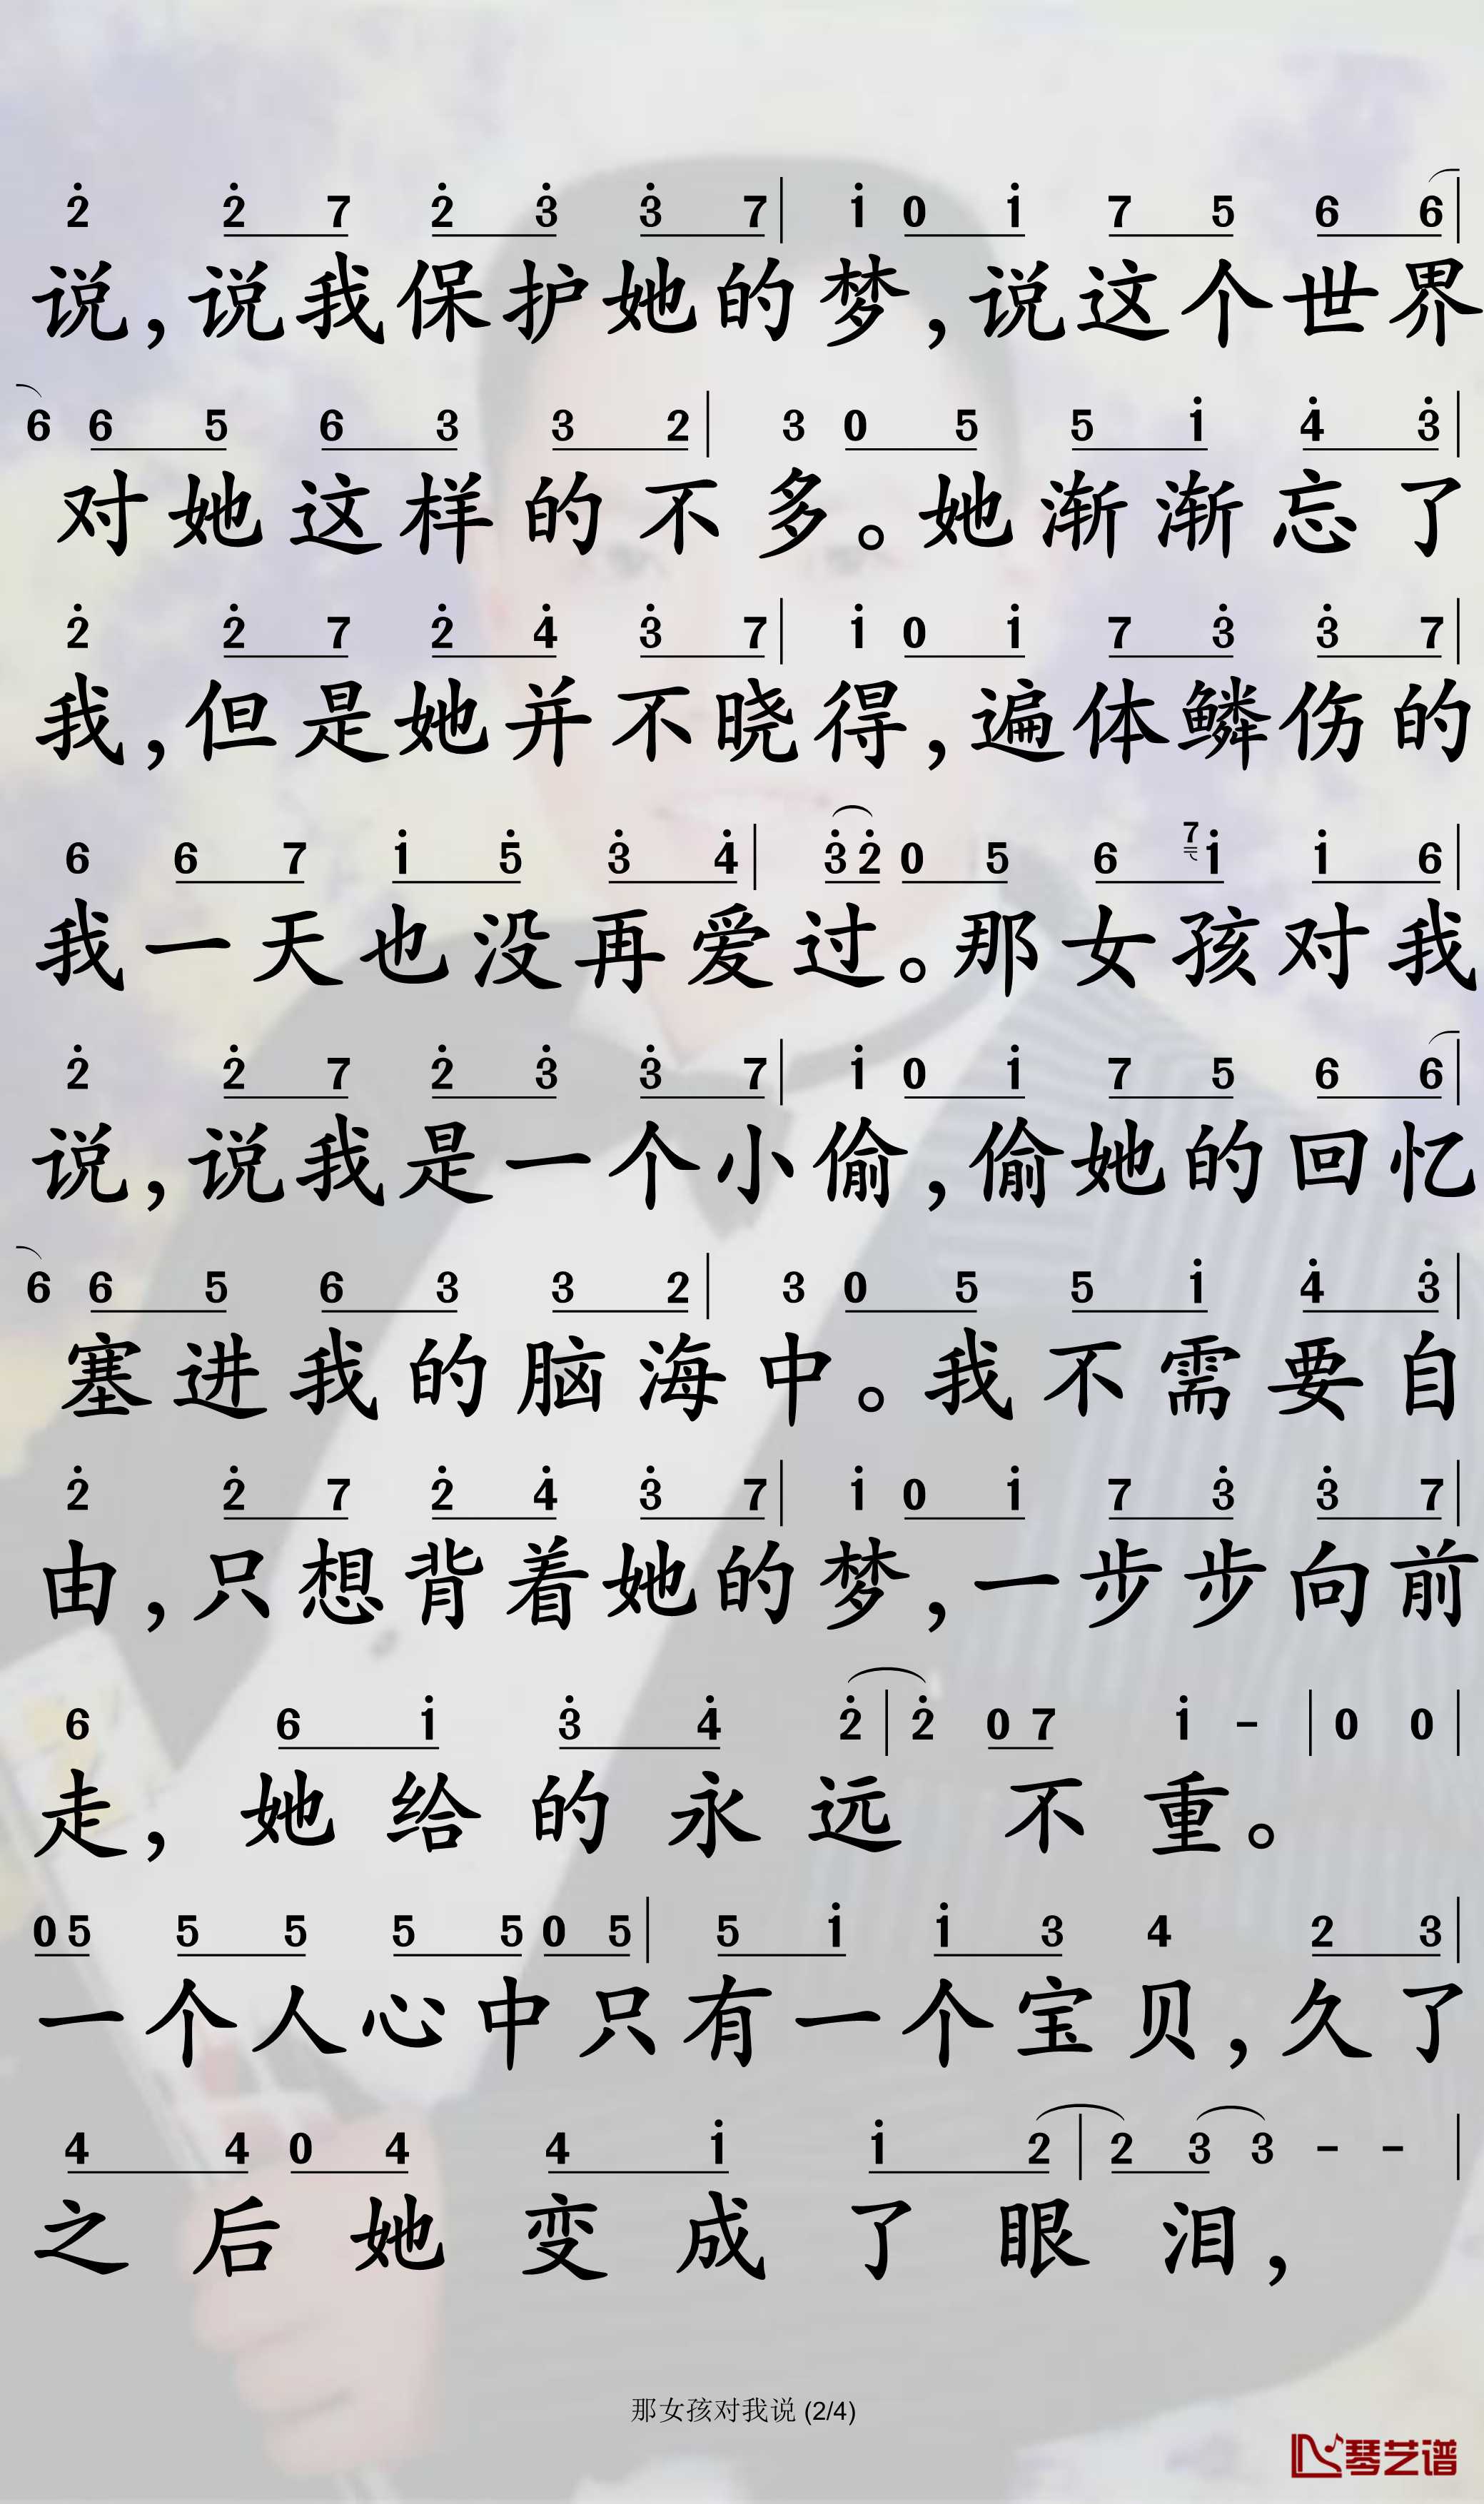 2̇ 2̇ 7 2̇ 3̇ 3̇ 7 | 1̇ 0 1̇ 7 5 6 6 |
说，说我保护她的梦，说这个世界
6 6 5 6 3 3 2 | 3 0 5 5 1̇ 4̇ 3̇ |
对她这样的不多。她渐渐忘了
2̇ 2̇ 7 2̇ 4̇ 3̇ 7 | 1̇ 0 1̇ 7 3̇ 3̇ 7 |
我，但是她并不晓得，遍体鳞伤的
6 6 7 1̇ 5̇ 3̇ 4̇ | 3̇ 2̇ 0 5 6 7 1̇ 1̇ 6 |
我一天也没再爱过。那女孩对我
2̇ 2̇ 7 2̇ 3̇ 3̇ 7 | 1̇ 0 1̇ 7 5 6 6 |
说，说我是一个小偷，偷她的回忆
6 6 5 6 3 3 2 | 3 0 5 5 1̇ 4̇ 3̇ |
塞进我的脑海中。我不需要自
2̇ 2̇ 7 2̇ 4̇ 3̇ 7 | 1̇ 0 1̇ 7 3̇ 3̇ 7 |
由，只想背着她的梦，一步步向前
6 6 1̇ 3̇ 4̇ 2̇ | 2̇ 0 7 1̇ - | 0 0 |
走，她给的永远不重。
0 5 5 5 5 5 0 5 | 5 1̇ 1̇ 3 4 2 3 |
一个人心中只有一个宝贝，久了
4 4 0 4 4 1̇ 1̇ 2 | 2 3 3 - - |
之后她变成了眼泪，
那女孩对我说 (2/4)
琴艺谱